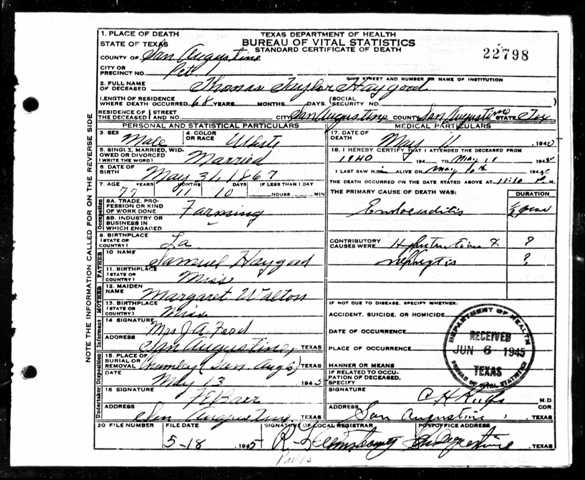 TEXAS DEPARTMENT OF HEALTH
BUREAU OF VITAL STATISTICS
STANDARD CERTIFICATE OF DEATH
22798
1. PLACE OF DEATH
STATE OF TEXAS
COUNTY OF San Augustine
CITY OR PRECINCT NO. 1
GIVE STREET AND NUMBER OR NAME OF INSTITUTION
2. FULL NAME OF DECEASED Thomas Haygood
LENGTH OF RESIDENCE WHERE DEATH OCCURRED 68 YEARS MONTHS DAYS SOCIAL SECURITY NO.
RESIDENCE OF THE DECEASED CITY San Augustine COUNTY San Augustine STATE Tex
PERSONAL AND STATISTICAL PARTICULARS
MEDICAL PARTICULARS
3. SEX Male 4. COLOR OR RACE White
17. DATE OF DEATH May 11
5. SINGLE, MARRIED, WIDOWED OR DIVORCED Married
18. I HEREBY CERTIFY THAT I ATTENDED THE DECEASED FROM
1940 TO May 11
6. DATE OF BIRTH May 31, 1867
I LAST SAW H ALIVE ON May 10th
7. AGE 77 11 10 IF LESS THAN 1 DAY HOURS MIN
THE DEATH OCCURRED ON THE DATE STATED ABOVE AT
8A. TRADE, PROFESSION OR KIND OF WORK DONE Farming
THE PRIMARY CAUSE OF DEATH WAS: DURATION
Endocarditis
8B. INDUSTRY OR BUSINESS IN WHICH ENGAGED
9. BIRTHPLACE (STATE OR COUNTRY) La
CONTRIBUTORY CAUSES WERE ?
Nephritis ?
FATHER
10 NAME Samuel Haygood
11. BIRTHPLACE (STATE OR COUNTRY) Miss
MOTHER
12. MAIDEN NAME Margaret Walton
13. BIRTHPLACE (STATE OR COUNTRY) Miss
IF NOT DUE TO DISEASE, SPECIFY WHETHER:
ACCIDENT, SUICIDE, OR HOMICIDE
DATE OF OCCURRENCE
14 SIGNATURE Mrs J.A.
ADDRESS San Augustine, TEXAS
PLACE OF OCCURRENCE
15. PLACE OF BURIAL OR REMOVAL San Aug TEXAS
MANNER OR MEANS
DATE May 13 1945
IF RELATED TO OCCUPATION OF DECEASED, SPECIFY
16 SIGNATURE
M.D.
ADDRESS San Augustine TEXAS
COR
San Augustine TEXAS
20 FILE NUMBER FILE DATE SIGNATURE OF LOCAL REGISTRAR POSTOFFICE ADDRESS
5-18 1945 San Augustine TEXAS
NOTE THE INFORMATION CALLED FOR ON THE REVERSE SIDE
DEPARTMENT OF HEALTH
RECEIVED
JUN 6 1945
TEXAS
BUREAU OF VITAL STATISTICS